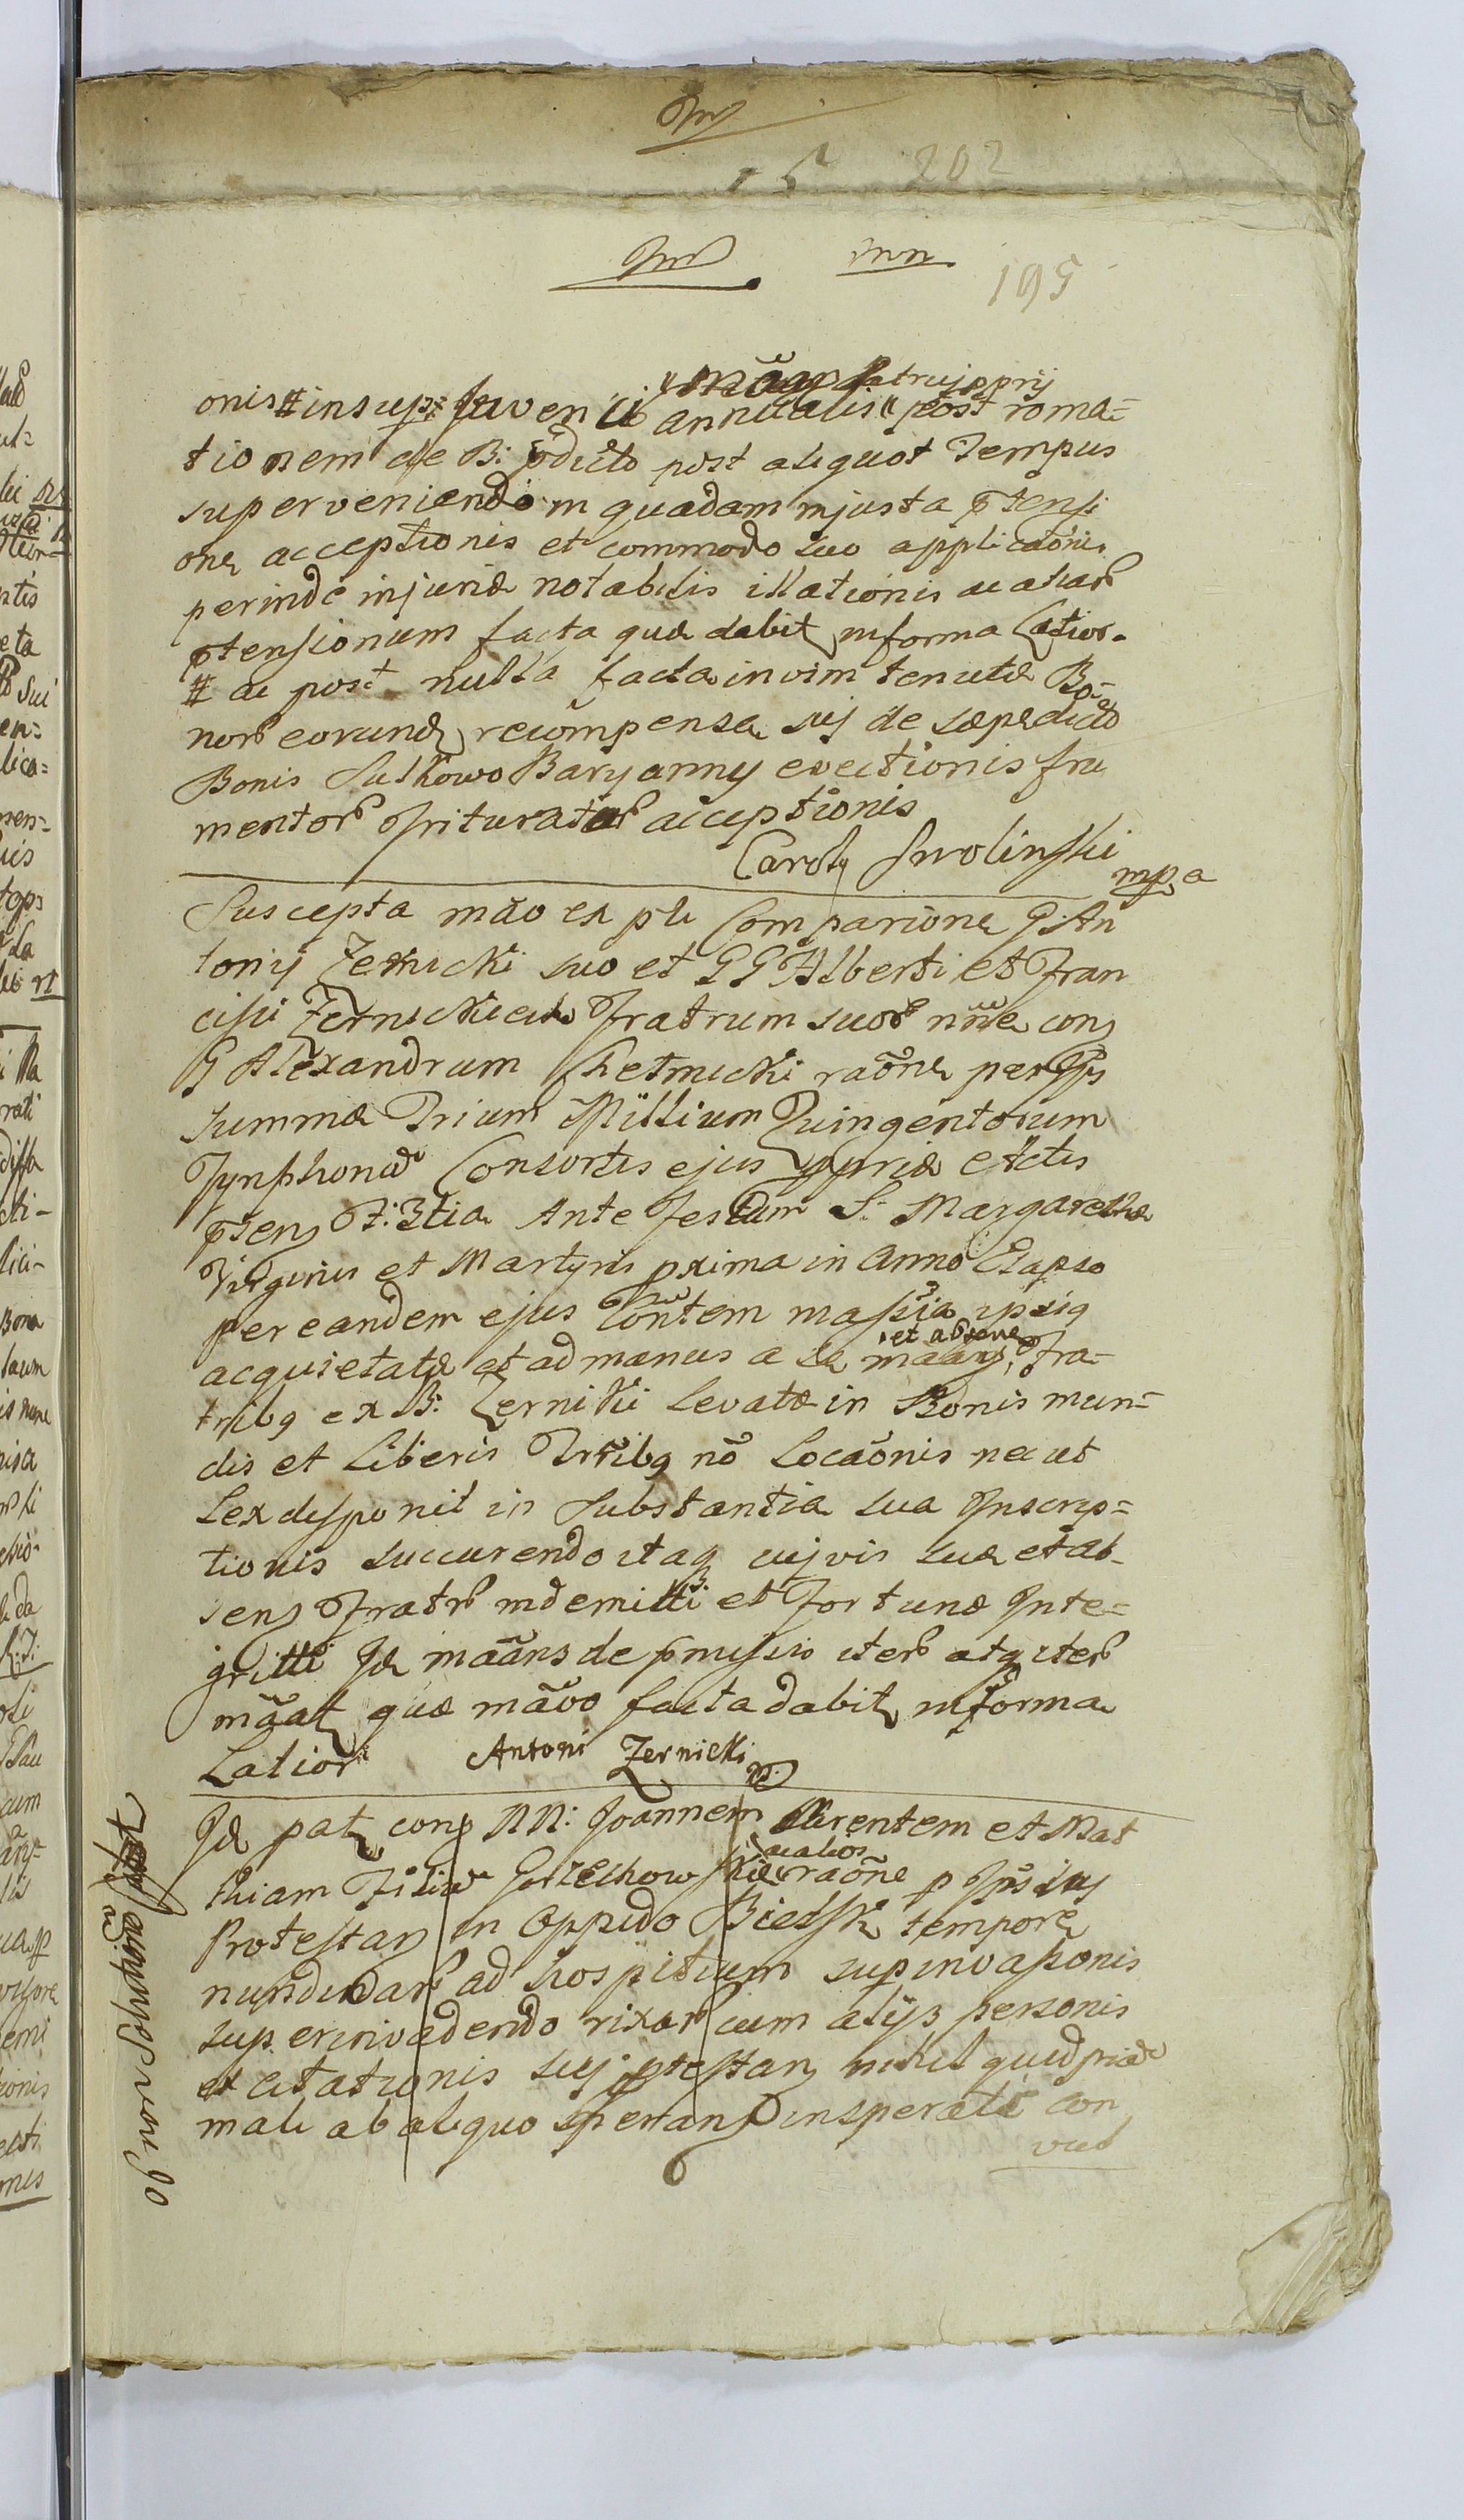 15 202
195
patrui pprij
onis # insup: Juvenci annualis post roma=
tionem de B: pdicto post aliquot Tempus
superveniendo in quadam injusta ptensi
one acceptionis et commodo suo applicaõnis
perinde injuriæ notabilis illationis ac aliar
ptensionum facta quæ dabit in forma Latior.
# ac post nulla facta in vim tenutæ Bo=
nor eorund recompensa sij de sæpedicto
Bonis Sulkowo Baryanny evectionis fru
mentor triturator acceptionis
Carol Smolinski
mpa
Suscepta mão ex pli Comparione G: An
tonij Zernicki suo et GG Alberti et Fran
cisci Zernickich Fratrum suor nñe con
G Alexandrum Chetmicki raõne
summæ Trium Millium Quingentorum
Tynphonũ Consortis ejus ppriæ
F: 3tia Ante Festum S: Margarethæ
Virginis et Martyris pxima in Anno Elapso
per eandem ejus Coñtem
et absene
acquietatæ et ad manus a se mããn, Fra=
tribq ex B: Zernikii levatæ in Bonis mun=
dis et Liberis Trribq nõ Locaõnis nec ut
Lex disponit in Substantia sua Inscrip=
tionis succurendo itaq cujvis suæ et ab
sen Fratr indemitti et Fortunæ Inte=
gritti Id mããns de pmissis iter atq iter
mãat quæ mãvo facta dabit in forma
Latiori Antoni Zernicki
mp
Id pat con NN: Joannem Parentem et Mat
ac alios
thiam Filiũ Gorzechowskie raõne p
Protestan in Oppido Bielsk tempore
nundinar ad hospitium sup invasionis
superinvadendo rixar cum alijs personis
excitationis sij ptestan nihil quidpiã
mali ab aliquo speran insperate con
vub
ob non Solutionẽ